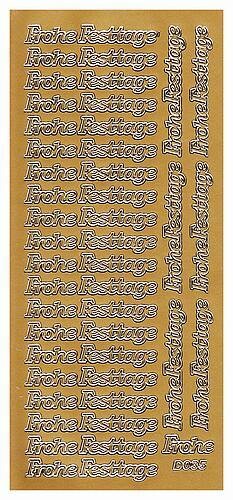 Frohe Festtage
Frohe Festtage
Frohe Festtage
Frohe Festtage
Frohe Festtage
Frohe Festtage
Frohe Festtage
Frohe Festtage
Frohe Festtage
Frohe Festtage
Frohe Festtage
Frohe Festtage
Frohe Festtage
Frohe Festtage
Frohe Festtage
Frohe Festtage
Frohe Festtage
Frohe Festtage
Frohe Festtage
Frohe Festtage
Frohe Festtage
Frohe Festtage
Frohe Festtage
Frohe Festtage
Frohe Festtage
Frohe Festtage
Frohe
DC35